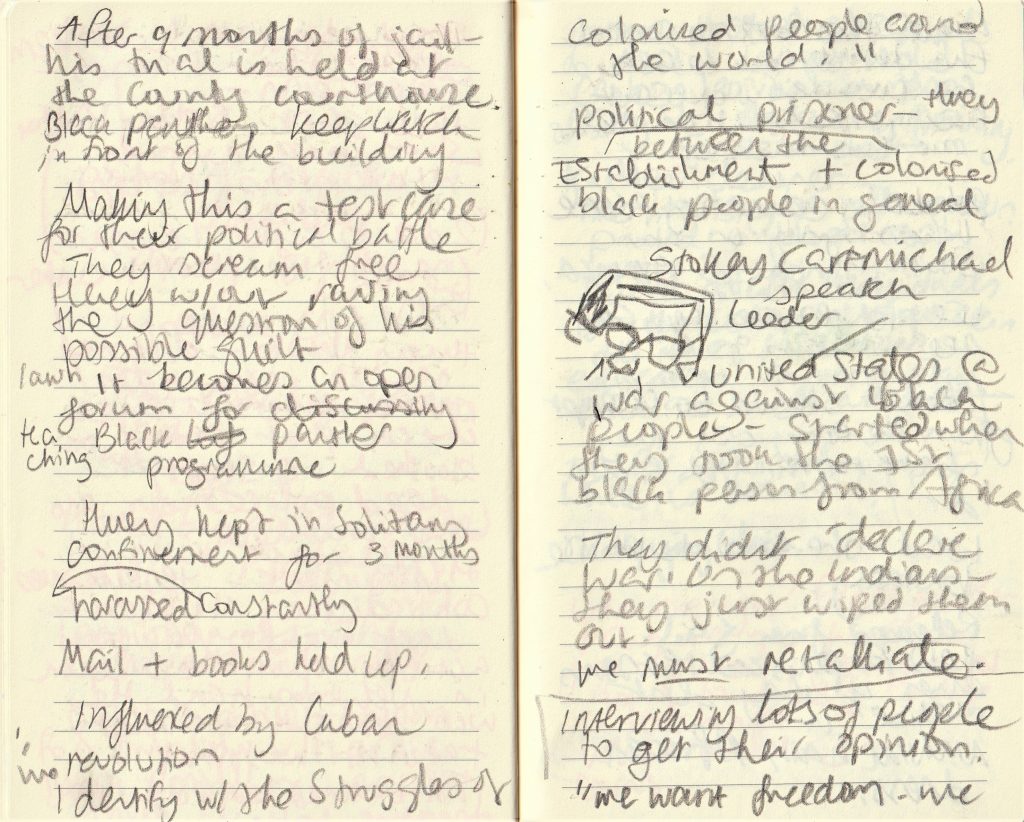 After 9 months of jail -
his trial is held at
the county courthouse.
Black panthers, keep watch
in front of the building
Making this a test case
for their political battle
They scream free
Huey w/out raising
the question of his
possible guilt
It becomes an open
forum for discussing
teaching Black panter
programme
Huey kept in Solitary
confinement for 3 months
harassed constantly
Mail + books held up.
Influenced by Cuban
revolution
"we
Identify w/ the Struggles of
Colonised people around
the world."
political prisoner - Huey
between the
Establishment + colonised
black people in general
Stokey Carmichael
speach
Leader
United States @
war against black
people - Started when
they took the 1st
black person from Africa
They didnt declare
war. On the indians -
they just wiped them
out.
we must retalliate.
Interviewing lots of people
to get their opinion.
"we want freedom - we